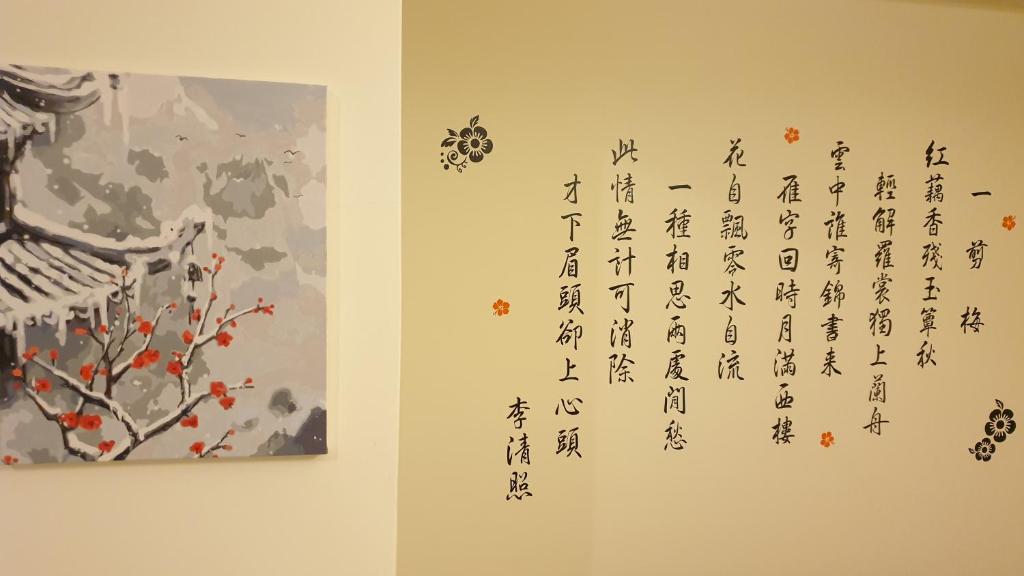 一剪梅
紅藕香殘玉簟秋
輕解羅裳獨上蘭舟
雲中誰寄錦書來
雁字回時月滿西樓
花自飄零水自流
一種相思兩處閒愁
此情無計可消除
才下眉頭卻上心頭
李清照